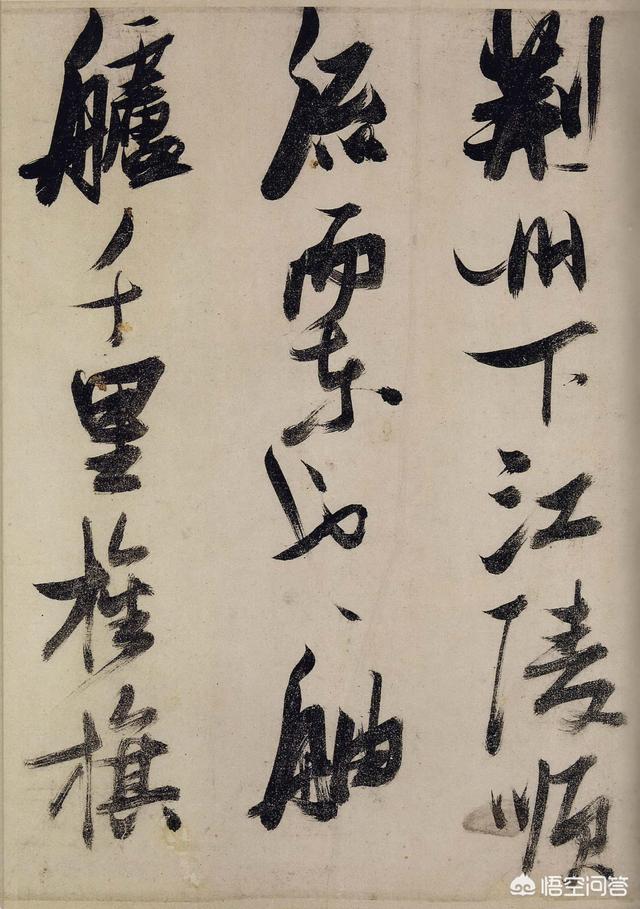 荊州下江陵順
流而東也舳
艫千里旌旗
悟空问答